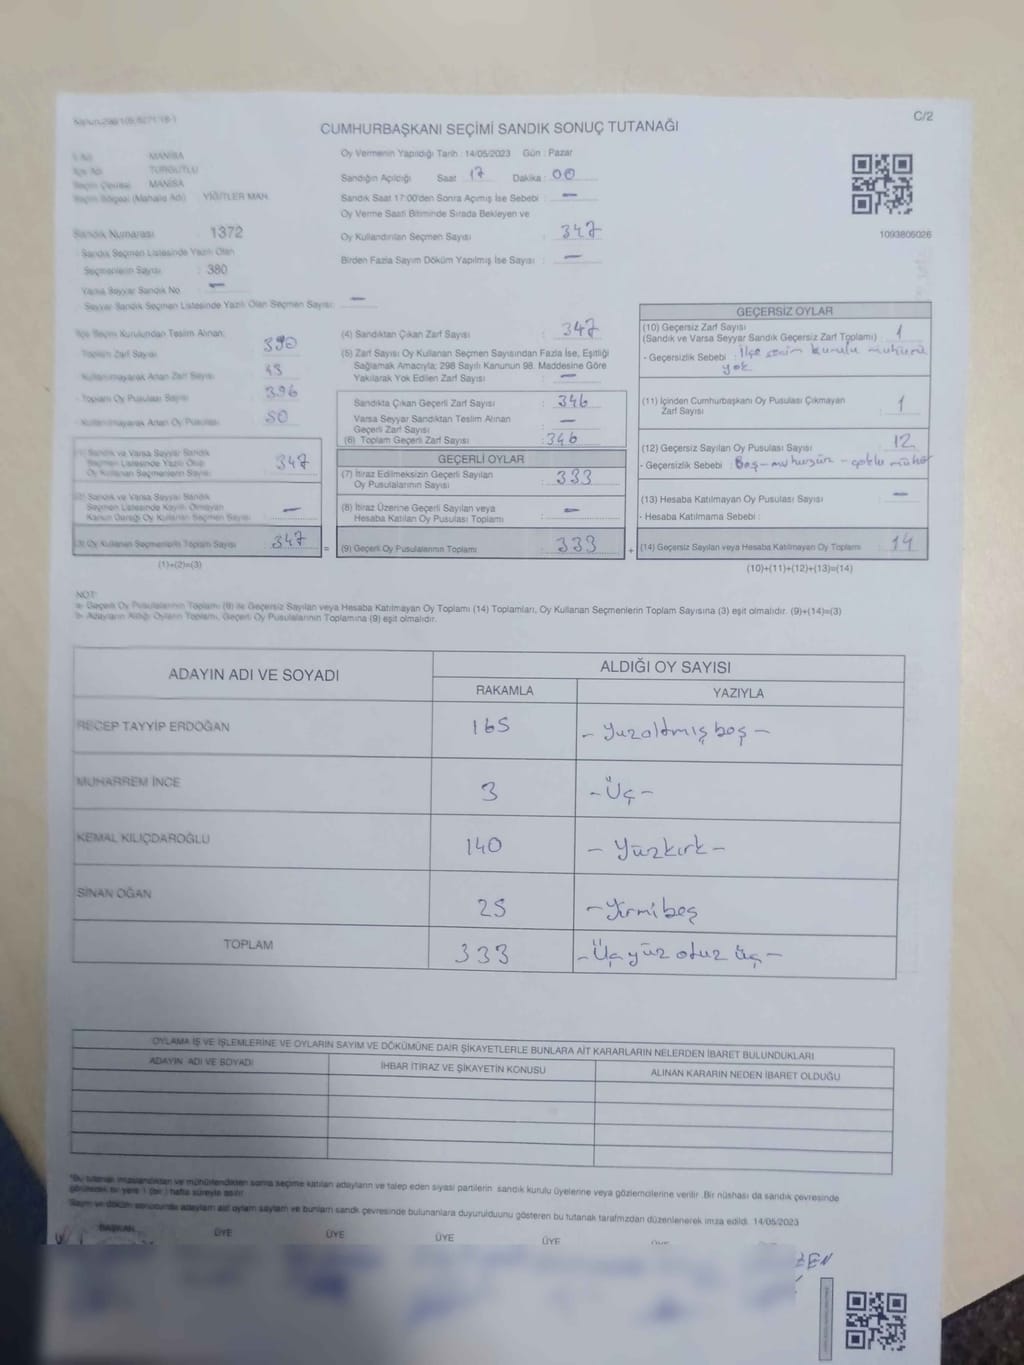 C/2
CUMHURBAŞKANI SEÇİMİ SANDIK SONUÇ TUTANAĞI
İl Adı MANİSA
İlçe Adı TURGUTLU
Seçim Çevresi MANİSA
Seçim Bölgesi (Mahalle Adı) YİĞİTLER MAH.
Sandık Numarası 1372
Sandık Seçmen Listesinde Yazılı Olan
Seçmenlerin Sayısı : 380
Varsa Seyyar Sandık No —
Seyyar Sandık Seçmen Listesinde Yazılı Olan Seçmen Sayısı: —
Oy Vermenin Yapıldığı Tarih : 14/05/2023 Gün : Pazar
Sandığın Açıldığı Saat : 17 Dakika : 00
Sandık Saat 17:00'den Sonra Açılmış İse Sebebi : —
Oy Verme Saati Bitiminde Sırada Bekleyen ve
Oy Kullandırılan Seçmen Sayısı : 347
Birden Fazla Sayım Döküm Yapılmış İse Sayısı : —
1093805026
İlçe Seçim Kurulundan Teslim Alınan:
Toplam Zarf Sayısı : 390
Kullanılmayarak Artan Zarf Sayısı
- Toplam Oy Pusulası Sayısı : 396
- Kullanılmayarak Artan Oy Pusulası : 50
(1) Sandık ve Varsa Seyyar Sandık
Seçmen Listesinde Yazılı Olup
Oy Kullanan Seçmenlerin Sayısı : 347
(2) Sandık ve Varsa Seyyar Sandık
Seçmen Listesinde Kayıtlı Olmayan
Kanun Gereği Oy Kullanan Seçmen Sayısı —
(3) Oy Kullanan Seçmenlerin Toplam Sayısı 347
(1)+(2)=(3)
(4) Sandıktan Çıkan Zarf Sayısı : 347
(5) Zarf Sayısı Oy Kullanan Seçmen Sayısından Fazla İse, Eşitliği
Sağlamak Amacıyla; 298 Sayılı Kanunun 98. Maddesine Göre
Yakılarak Yok Edilen Zarf Sayısı : —
Sandıkta Çıkan Geçerli Zarf Sayısı : 346
Varsa Seyyar Sandıktan Teslim Alınan
Geçerli Zarf Sayısı : —
(6) Toplam Geçerli Zarf Sayısı : 346
GEÇERLİ OYLAR
(7) İtiraz Edilmeksizin Geçerli Sayılan
Oy Pusulalarının Sayısı : 333
(8) İtiraz Üzerine Geçerli Sayılan veya
Hesaba Katılan Oy Pusulası Toplamı : —
= (9) Geçerli Oy Pusulalarının Toplamı : 333
GEÇERSİZ OYLAR
(10) Geçersiz Zarf Sayısı
(Sandık ve Varsa Seyyar Sandık Geçersiz Zarf Toplamı) : 1
- Geçersizlik Sebebi : İlçe seçim kurulu mührü
yok
(11) İçinden Cumhurbaşkanı Oy Pusulası Çıkmayan
Zarf Sayısı : 1
(12) Geçersiz Sayılan Oy Pusulası Sayısı : 12
- Geçersizlik Sebebi : Boş - mühürsün - çoklu mühür
(13) Hesaba Katılmayan Oy Pusulası Sayısı : —
- Hesaba Katılmama Sebebi :
+ (14) Geçersiz Sayılan veya Hesaba Katılmayan Oy Toplamı : 14
(10)+(11)+(12)+(13)=(14)
NOT:
a- Geçerli Oy Pusulalarının Toplamı (9) ile Geçersiz Sayılan veya Hesaba Katılmayan Oy Toplamı (14) Toplamları, Oy Kullanan Seçmenlerin Toplam Sayısına (3) eşit olmalıdır. (9)+(14)=(3)
b- Adayların Aldığı Oyların Toplamı, Geçerli Oy Pusulalarının Toplamına (9) eşit olmalıdır.
ADAYIN ADI VE SOYADI
ALDIĞI OY SAYISI
RAKAMLA YAZIYLA
RECEP TAYYİP ERDOĞAN 165 - Yuzaltmış beş -
MUHARREM İNCE 3 - Üç -
KEMAL KILIÇDAROĞLU 140 - Yüzkırk -
SİNAN OĞAN 25 - Yirmibeş
TOPLAM 333 - Üçyüz otuz üç -
OYLAMA İŞ VE İŞLEMLERİNE VE OYLARIN SAYIM VE DÖKÜMÜNE DAİR ŞİKAYETLERLE BUNLARA AİT KARARLARIN NELERDEN İBARET BULUNDUKLARI
ADAYIN ADI VE SOYADI İHBAR İTİRAZ VE ŞİKAYETİN KONUSU ALINAN KARARIN NEDEN İBARET OLDUĞU
*Bu tutanak imzalandıktan ve mühürlendikten sonra seçime katılan adayların ve talep eden siyasi partilerin sandık kurulu üyelerine veya gözlemcilerine verilir. Bir nüshası da sandık çevresinde
görülecek bir yere 1 (bir) hafta süreyle asılır.
Sayım ve döküm sonucunda adayların asıl oyların sayıları ve bunların sandık çevresinde bulunanlara duyurulduunu gösteren bu tutanak tarafmzdan düzenlenerek imza edildi. 14/05/2023
BAŞKAN ÜYE ÜYE ÜYE ÜYE